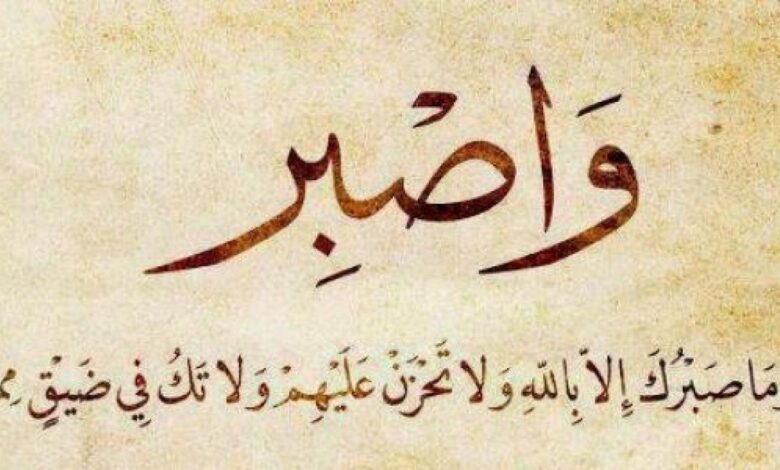 وَاصْبِر
مَا صَبْرُكَ إِلاَّ بِاللّهِ وَلاَ تَحْزَنْ عَلَيْهِمْ وَلاَ تَكُ فِي ضَيْقٍ